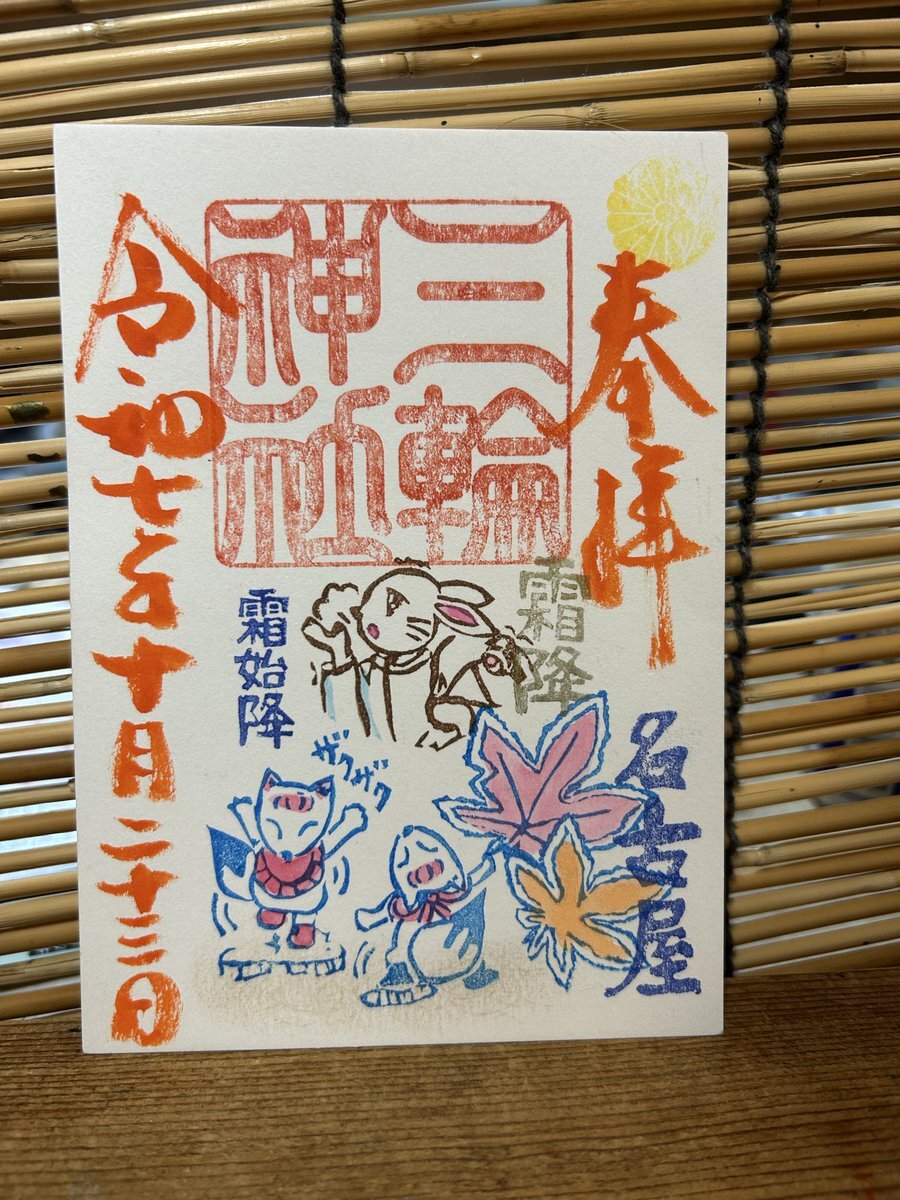 奉拝
三輪
神社
霜降
霜始降
ザクザク
名古屋
令和七年十月二十三日